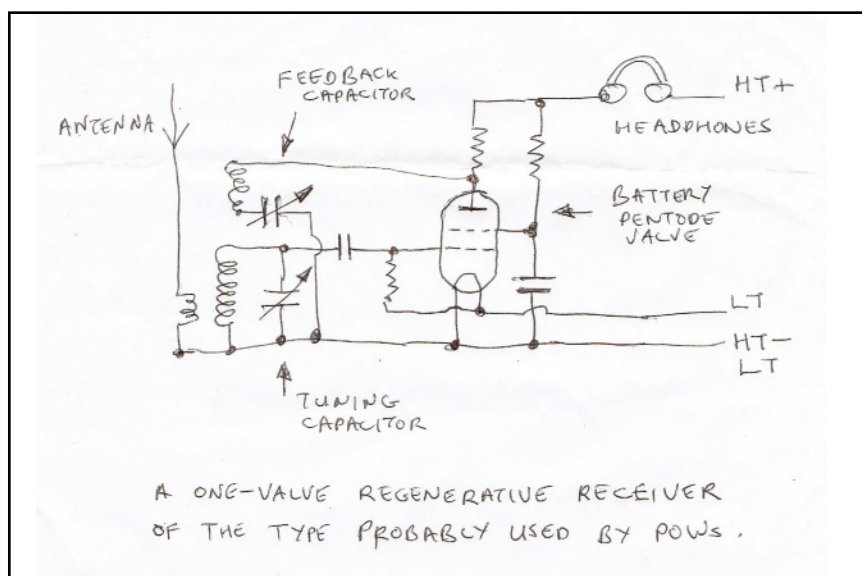 FEEDBACK
CAPACITOR
ANTENNA
HT+
HEADPHONES
BATTERY
PENTODE
VALVE
LT
HT-
LT
TUNING
CAPACITOR
A ONE-VALVE REGENERATIVE RECEIVER
OF THE TYPE PROBABLY USED BY POWS.